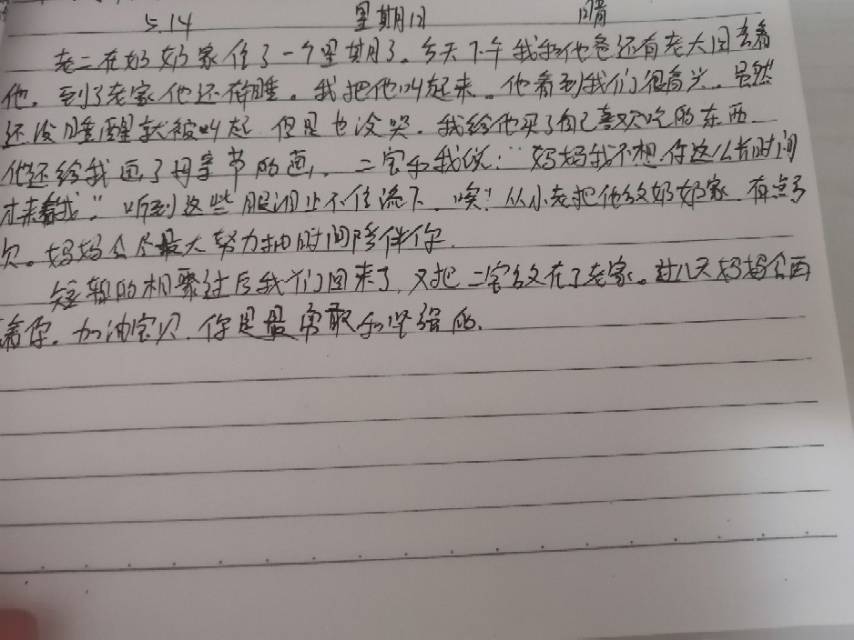 5.14 星期日 晴
老二在奶奶家住了一个星期了。今天下午我和他爸还有老大回去看
他。到了老家他还在睡。我把他叫起来。他看到我们很高兴。虽然
还没睡醒就被叫起 但是也没哭。我给他买了自己喜欢吃的东西
他还给我画了母亲节的画，二宝和我说：“妈妈我不想你这么长时间
才来看我”听到这些眼泪止不住流下，唉！从小老把他放奶奶家 有点亏
欠。妈妈会尽最大努力抽时间陪伴你.
短暂的相聚过后我们回来了，又把二宝放在了老家。过几天妈妈会再
看你。加油宝贝，你是最勇敢和坚强的.